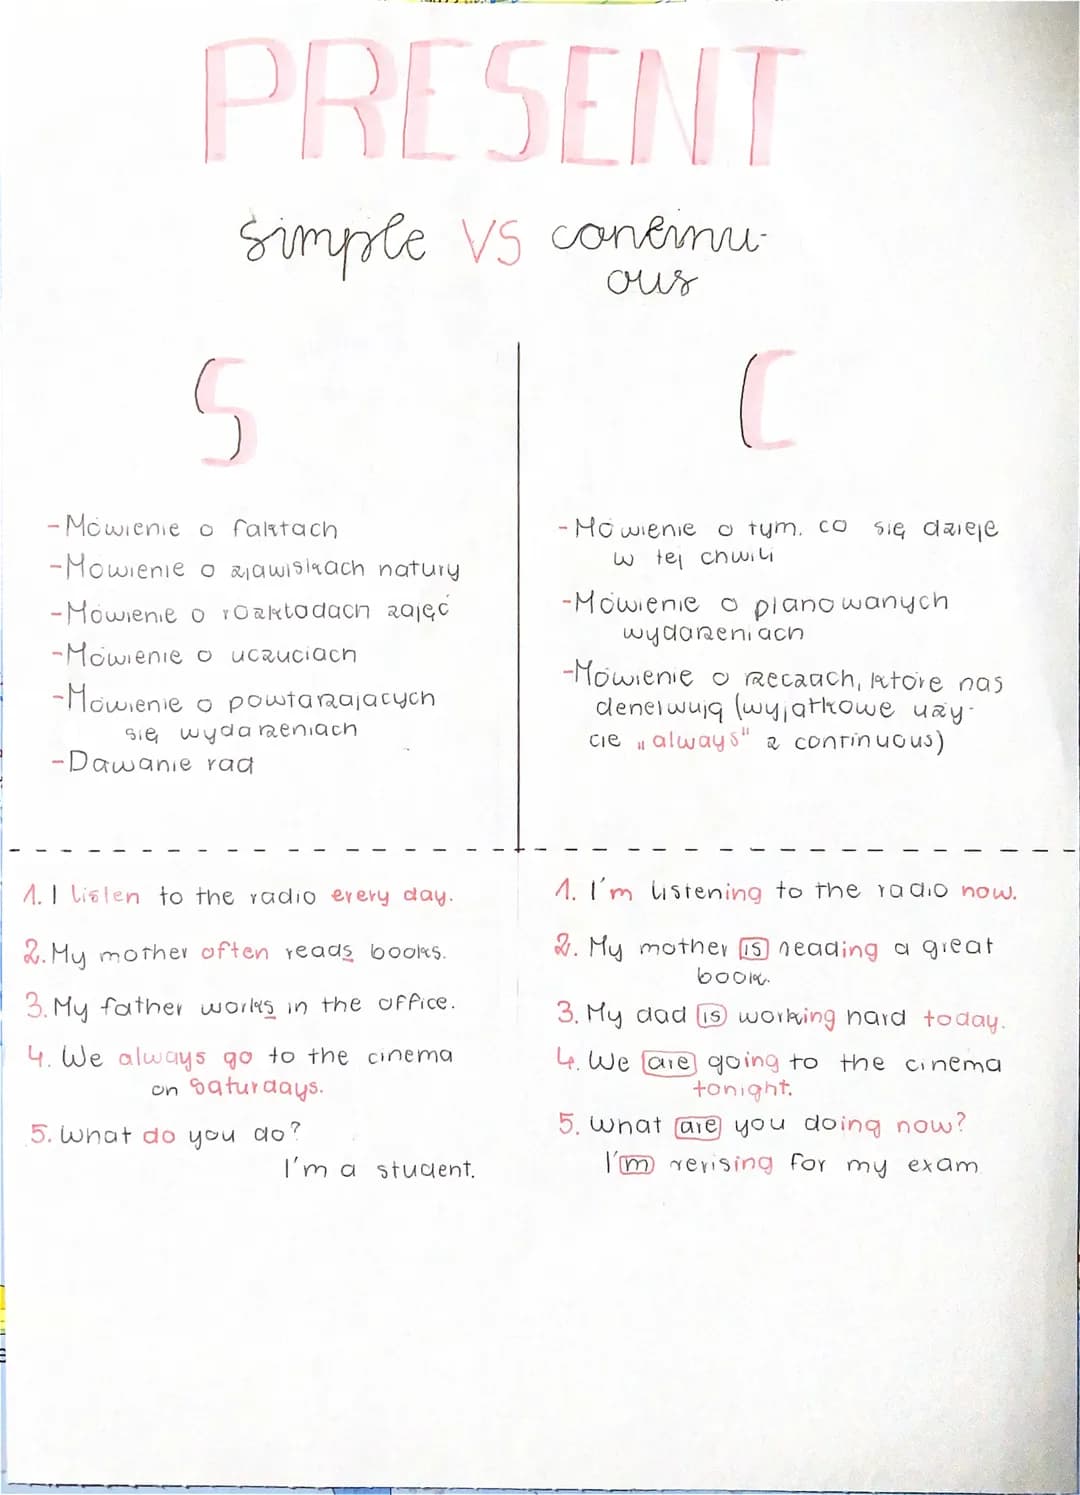 PRESENT
simple VS continu-
ous
S
-Mówienie o faktach
-Mówienie o zjawiskach natury
-Mówienie o rozkładach zajęć
-Mówienie o uczuciach
-Mówienie o powtarzających
się wydarzeniach
-Dawanie rad
C
-Mówienie o tym, co się dzieje
w tej chwili
-Mówienie o planowanych
wydarzeniach
-Mówienie o rzeczach, które nas
denerwują (wyjątkowe uży-
cie „always" z continuous)
1. I listen to the radio every day.
2. My mother often reads books.
3. My father works in the office.
4. We always go to the cinema
on Saturdays.
5. What do you do?
I'm a student.
1. I'm listening to the radio now.
2. My mother is reading a great
book.
3. My dad is working hard today.
4. We are going to the cinema
tonight.
5. What are you doing now?
I'm revising for my exam